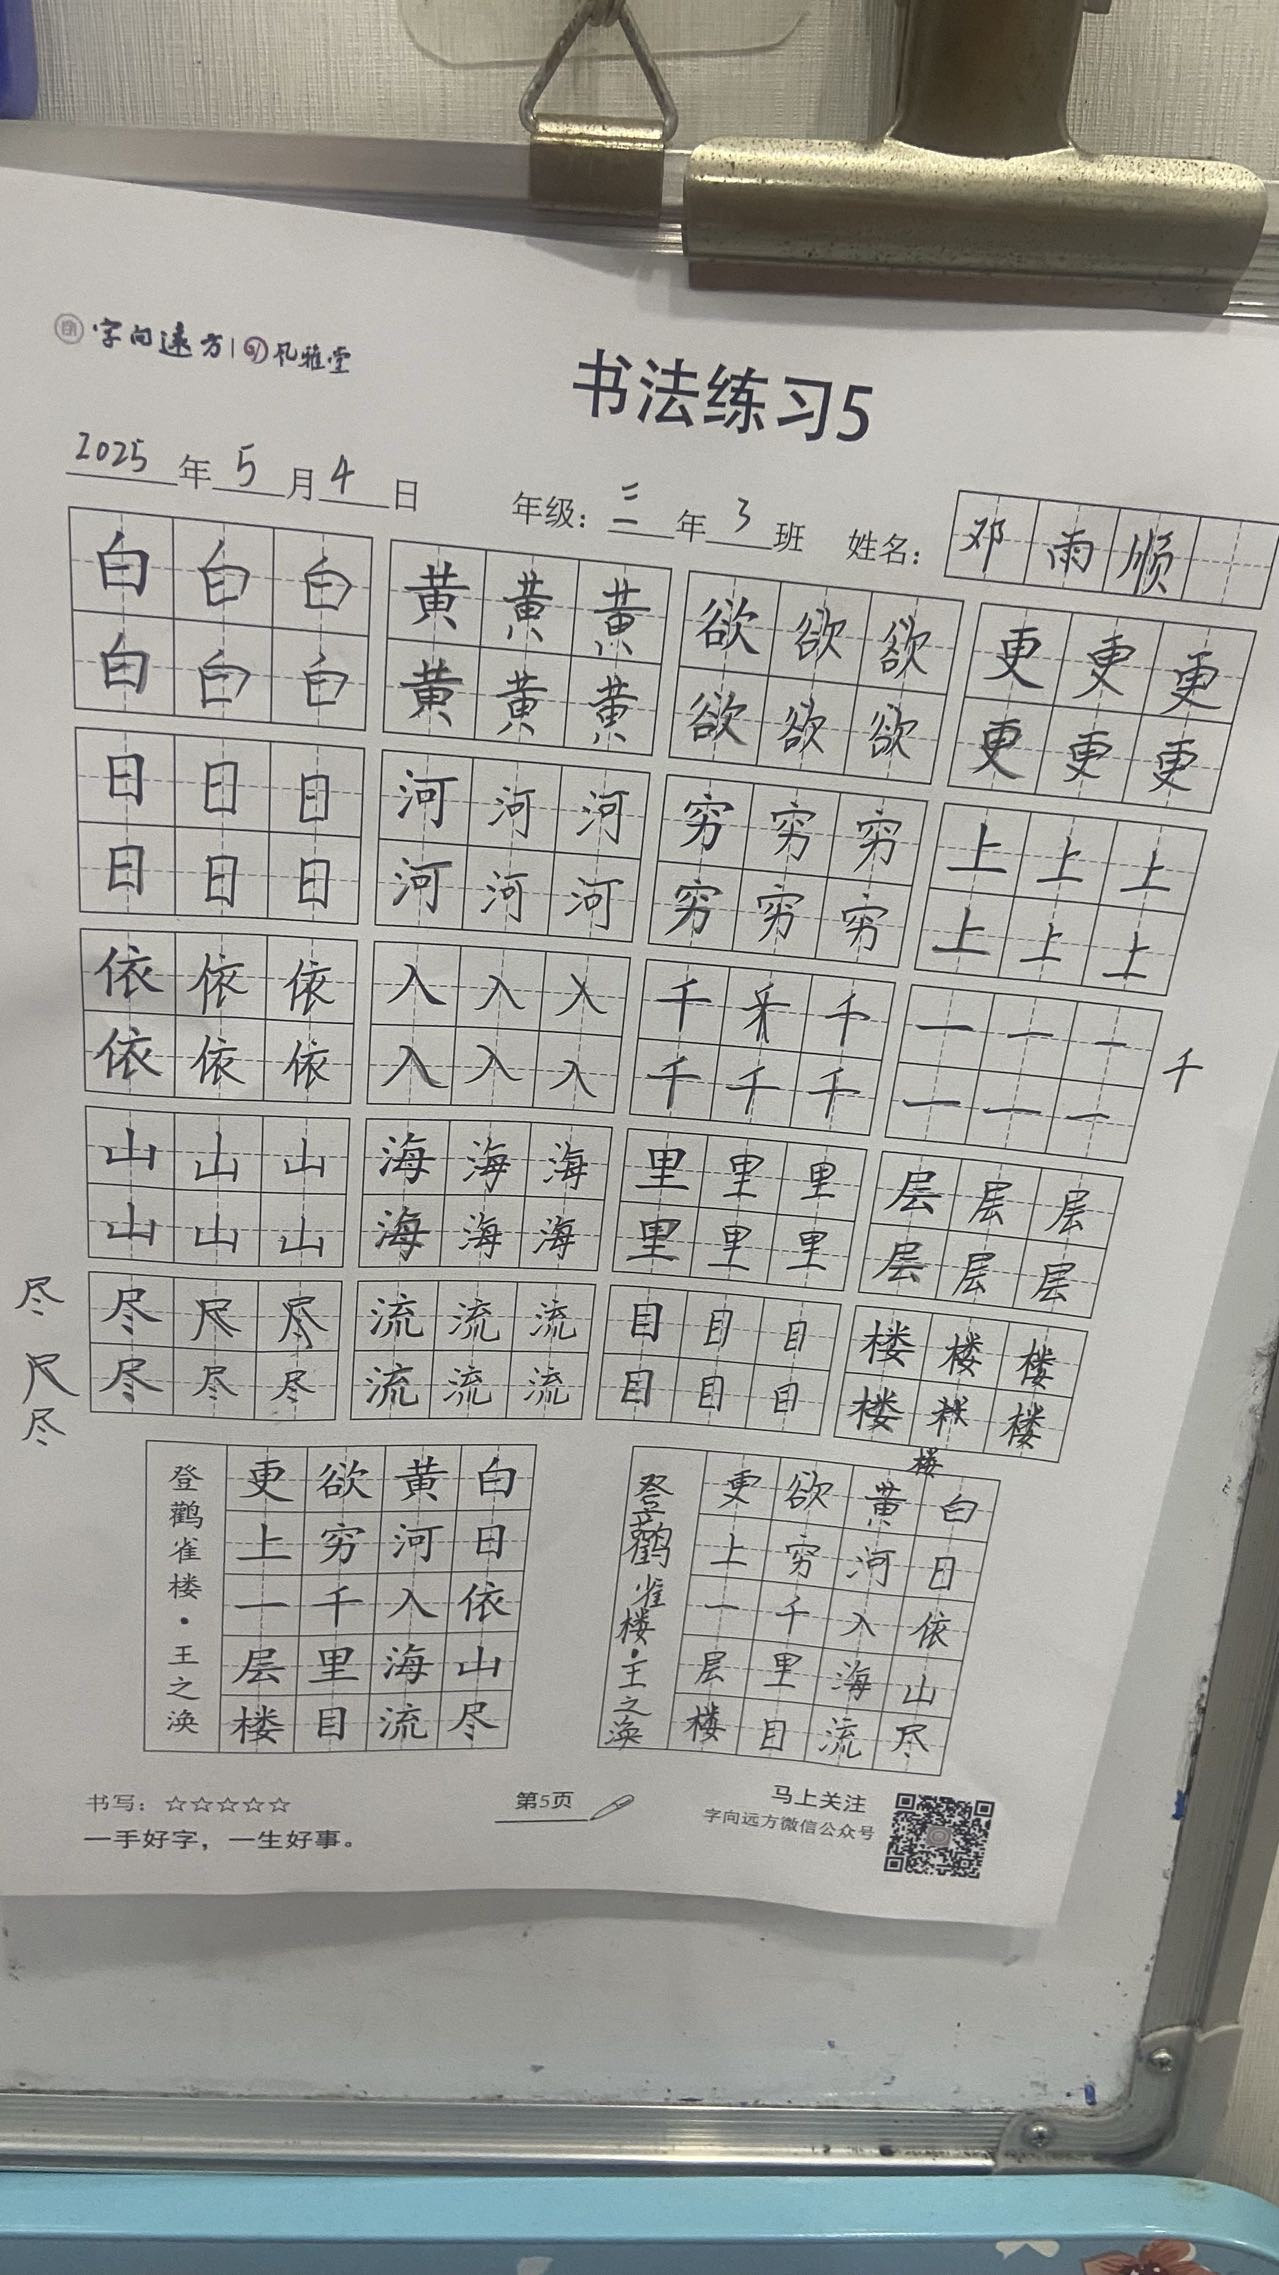 字向远方 | 风雅堂
书法练习5
2025年5月4日 年级：三年3班 姓名：邓雨顺
白白白 黄黄黄 欲欲欲 更更更
白白白 黄黄黄 欲欲欲 更更更
日日日 河河河 穷穷穷 上上上
日日日 河河河 穷穷穷 上上上
依依依 入入入 千千千 一一一
依依依 入入入 千千千 一一一
千
山山山 海海海 里里里 层层层
山山山 海海海 里里里 层层层
尽 尽尺尽 流流流 目目目 楼楼楼
尺
尽 尽尽尽 流流流 目目目 楼 楼
楼
白日依山尽
黄河入海流
欲穷千里目
更上一层楼
登鹳雀楼·王之涣
白日依山尽
黄河入海流
欲穷千里目
更上一层楼
登鹳雀楼·王之涣
书写：☆☆☆☆☆
一手好字，一生好事。
第5页
马上关注
字向远方微信公众号